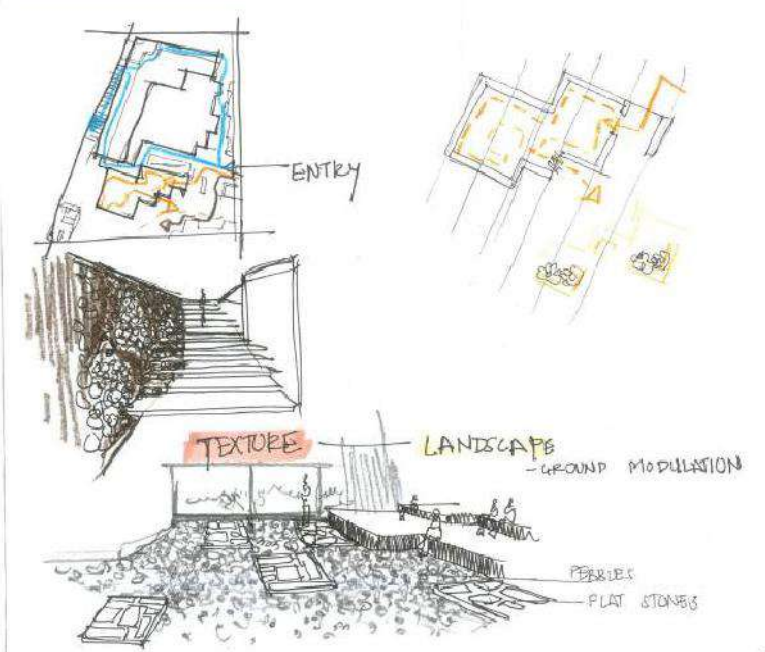 ENTRY
TEXTURE
LANDSCAPE
-GROUND MODULATION
PEBBLES
FLAT STONES